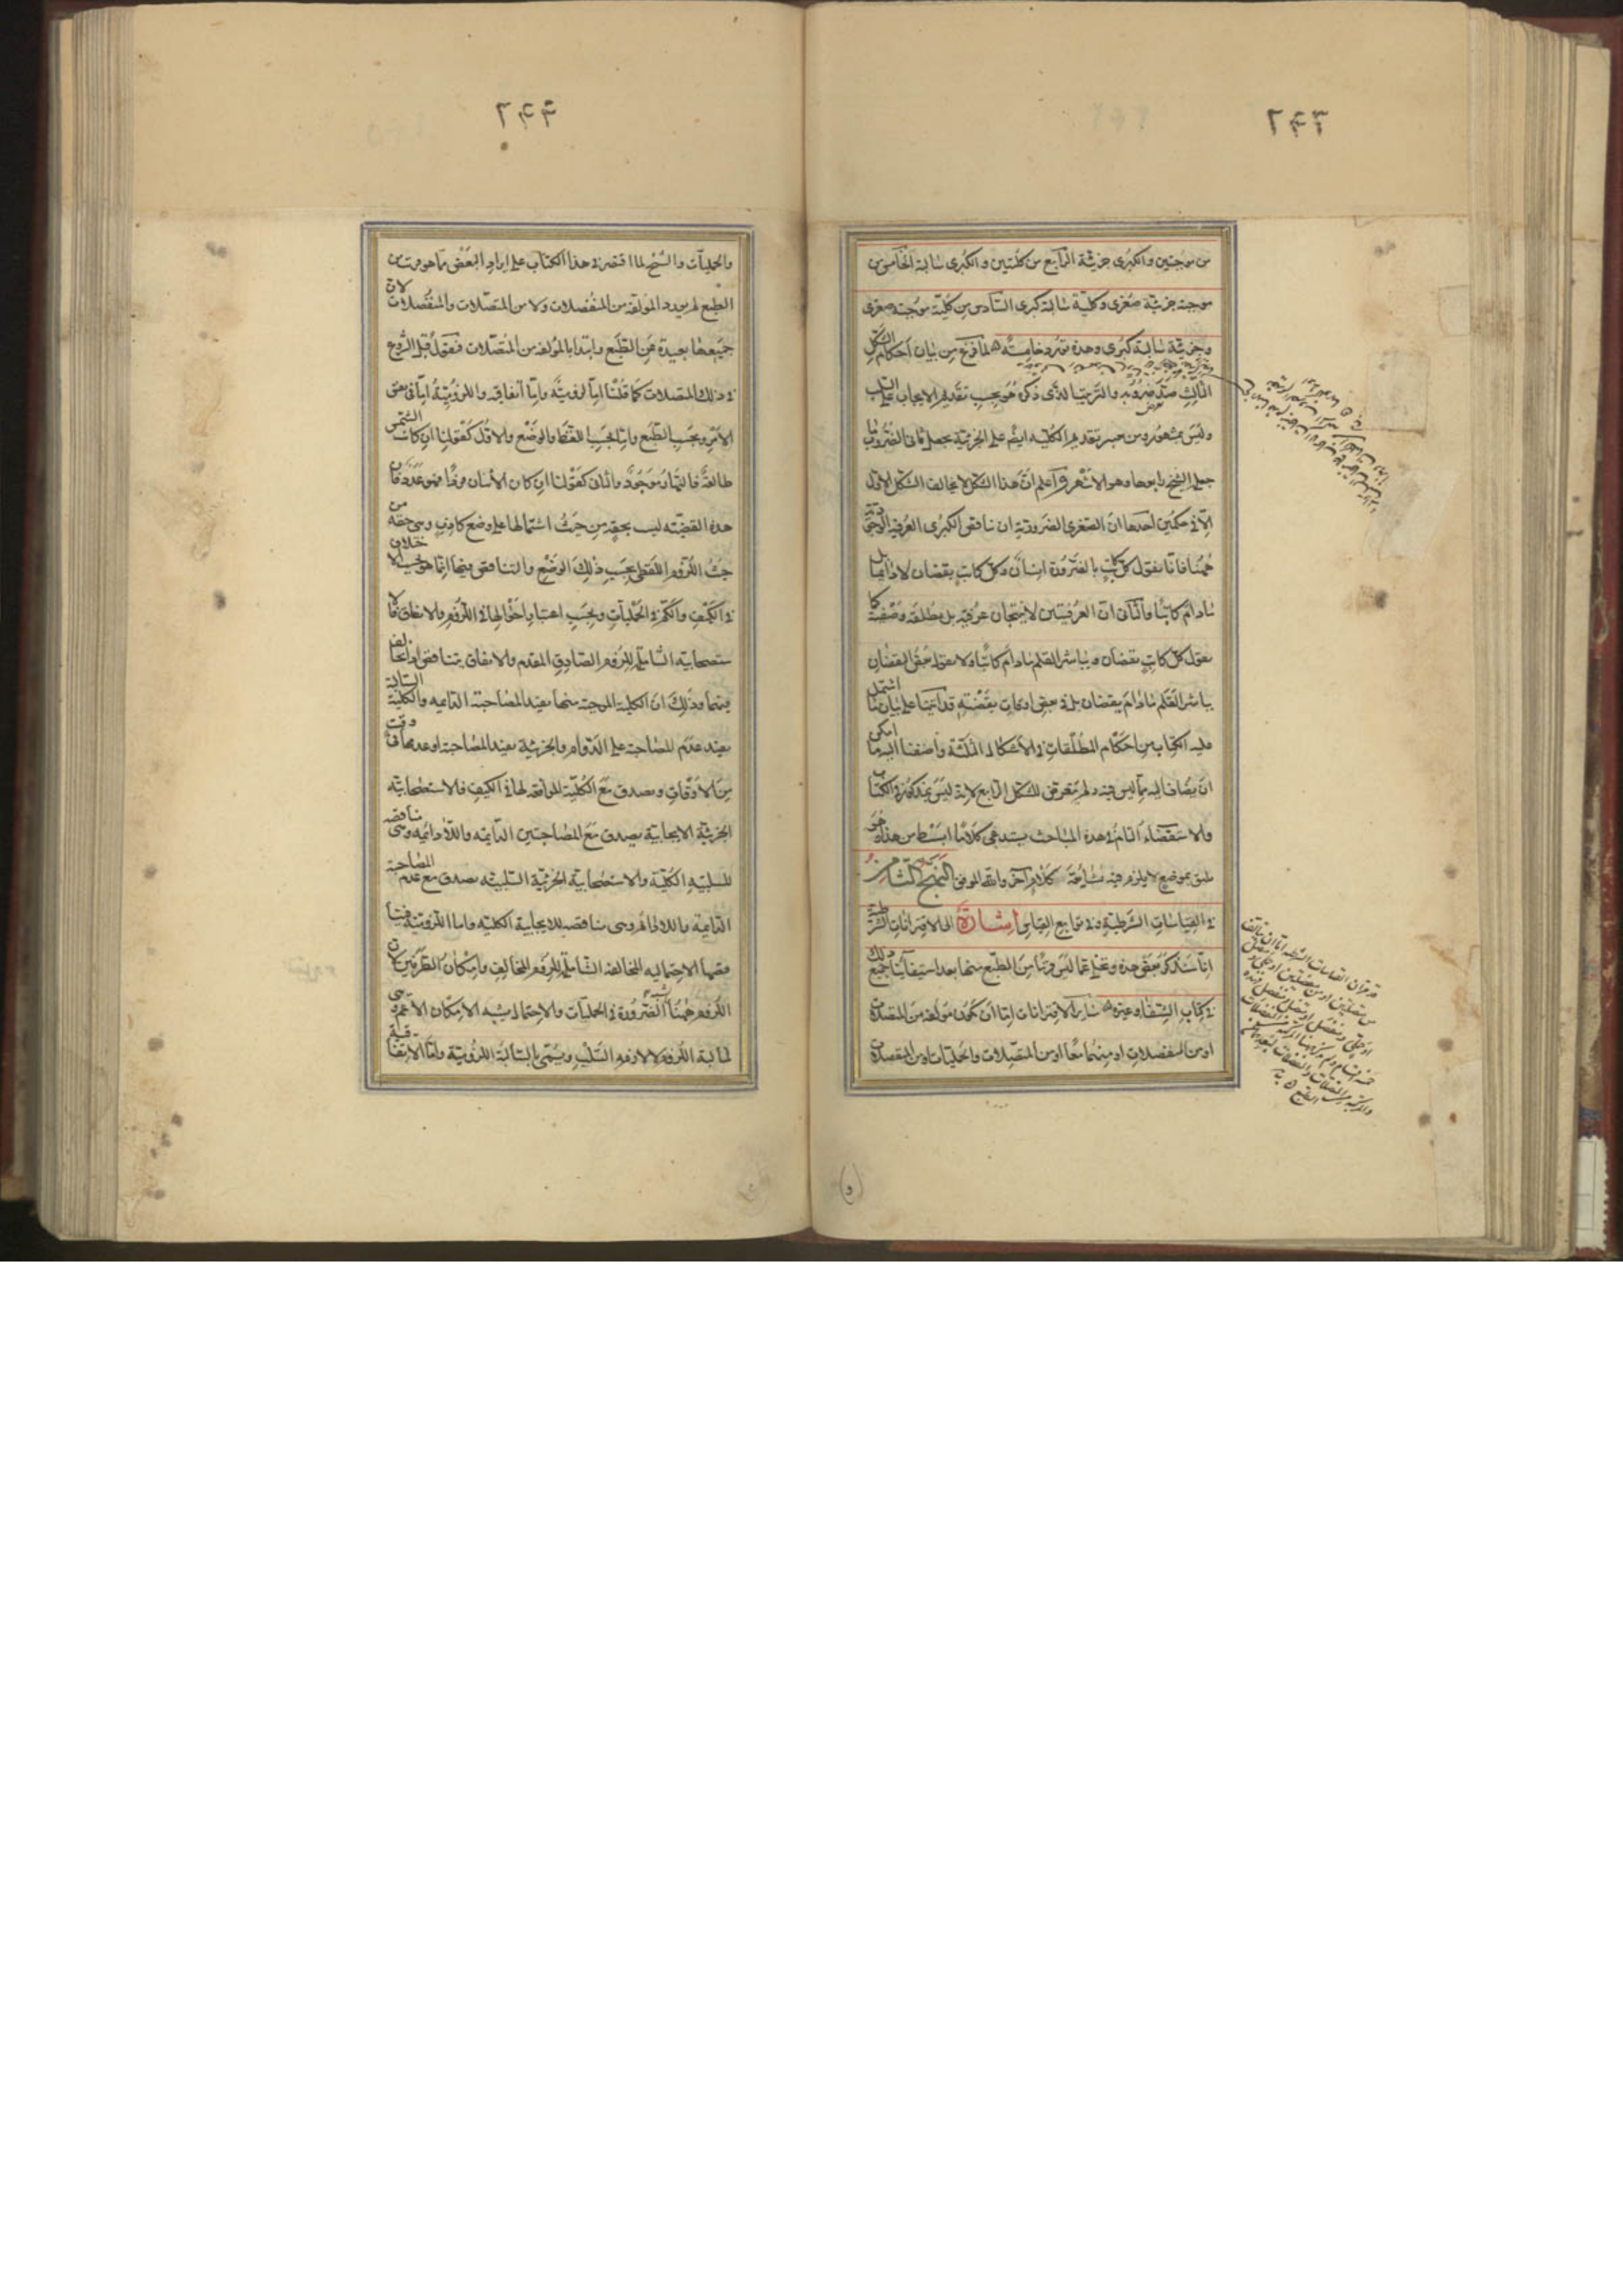 من موجبتين والكبرى جزئية الرابع من كليتين والكبرى سالبة الخامس من
موجبة جزئية صغرى وكلية سالبة كبرى السادس من كلية موجبة صغرى
وجزئية سالبة كبرى وهذه تورد خامسة لما فرغ من بيان أحكام الشكل
الثالث عد ضروبه والترتيب الذي ذكره هو بحسب تقديم الايجاب على السلب
وليس بمشهور ومن يعتبر تقديم الكلية ايضا على الجزئية يجعل ثاني الضروب ما
جعله الشيخ رابعها وهو الاشهر واعلم ان هذا الشكل لا يخالف الشكل الاول
الا في حكمين احدهما ان الصغرى الضرورية ان ناقض الكبرى العرفية الوجودية
ههنا فانا نقول كل كاتب بالضرورة انسان وكل كاتب يقضان لا دائما بل
مادام كاتبا والثاني ان العرفيتين لا ينتجان عرفية بل مطلقة وصفية كما
نقول كل كاتب يقضان ويباشر القلم مادام كاتبا ولا نقول بعض اليقضان
يباشر القلم مادام يقضان بل في بعض اوقات يقضته قد اتينا على بيان ما اشتمل
عليه الكتاب من احكام المطلقات في الاشكال الثلثة واضفنا اليه ما امكن
ان يضاف اليه مما ليس فيه ولم نتعرض للشكل الرابع لانه ليس بمذكور في الكتاب
والاستقصاء التام في هذه المباحث يستدعي كلاما ابسط من هذا وهو
يليق بموضع لا يلزم فيه متابعة كلام آخر والله الموفق النهج الثامن
في القياسات الشرطية وفي توابع القياس اشارة الى الاقترانات الشرطية
انا سنذكر بعض هذه ونخلي عما ليس قريبا من الطبع منها بعد استيفائنا جميع ذلك
في كتاب الشفاء وغيره سائر الاقترانات اما ان تكون مؤلفة من المتصلات
او من المنفصلات او منهما معا او من المتصلات والحمليات او من المنفصلات
والحمليات والشيخ لما اقتصر في هذا الكتاب على ايراد البعض مما هو قريب من
الطبع لم يورد المؤلفة من المنفصلات ولا من المتصلات والمنفصلات لان
جميعها بعيدة عن الطبع وابتدا بالمؤلفة من المتصلات فنقول قبل الشروع
في ذلك والمتصلات كما قلنا اما لزومية واما اتفاقية واللزومية اما في نفس
الامر وبحسب الطبع واما بحسب اللفظ والوضع والاول كقولنا ان كانت الشمس
طالعة فالنهار موجود والثاني كقولنا ان كان الانسان فردا فهو عدد فان
هذه القضية ليست بحقة من حيث اشتمالها على وضع كاذب وهي حقة من
حيث اللزوم اللفظي بحسب ذلك الوضع والتناقض فيها انما هو بحسب الاختلاف
في الكيف والكم في الحمليات وبحسب اعتبار احوالها في اللزوم والاتفاق فالا
ستصحابية الشاملة للزوم الصادق المقدم والاتفاق تتناقض اذا تخالف
فيهما وذلك ان الكلية الموجبة منها يفيد المصاحبة الدائمة والكلية السالبة
يفيد عدم المصاحبة على الدوام والجزئية يفيد المصاحبة او عدمها في وقت
من الاوقات وتصدق مع الكلية الموافقة لها في الكيف فالاستصحابية
الجزئية الايجابية تصدق مع المصاحبتين الدائمة واللادائمة وهي مناقضة
للسلبية الكلية والاستصحابية الجزئية السلبية تصدق مع عدم المصاحبة
الدائمة واللادائمة وهي مناقضة للايجابية الكلية واما اللزومية
فنقيضها الاحتمالية المخالفة الشاملة للزوم المخالف وامكان الطرفين لان
اللزوم ههنا يشبه الضرورة في الحمليات والاحتمال يشبه الامكان الاعم وهي
سالبة اللزوم لا لازمة السلب ويسمى بالسالبة اللزومية واما الاتفاقية